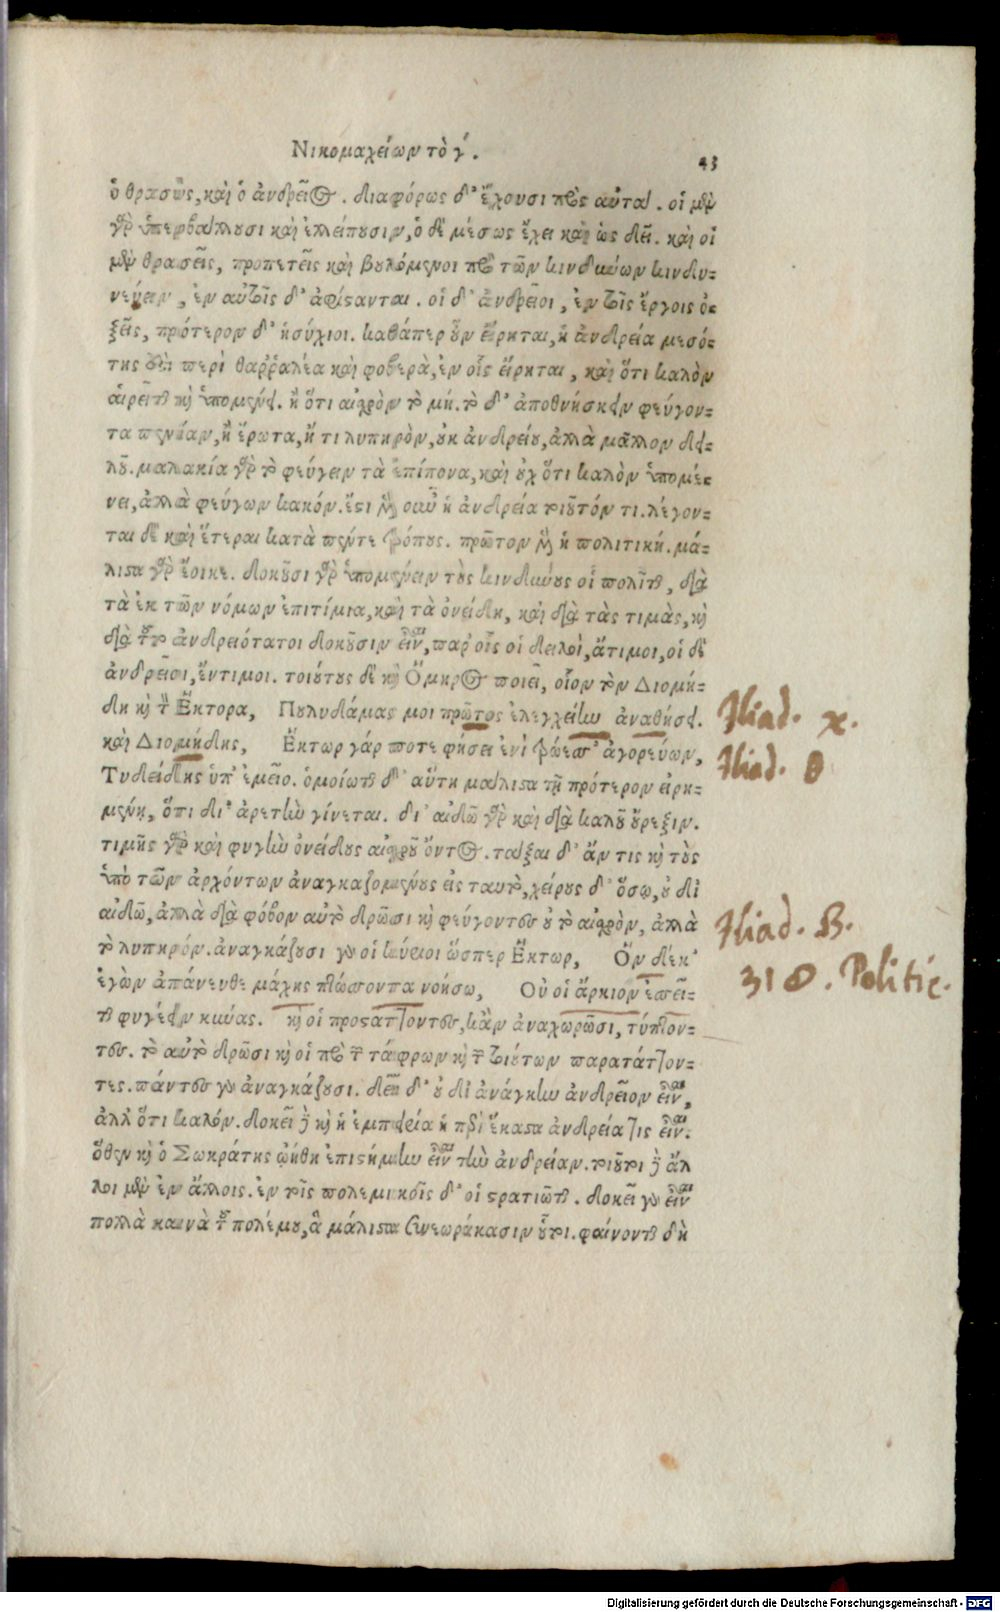 Νικομαχείων τὸ γ΄.
43
ὁ θρασὺς, καὶ ὁ ἀνδρεῖος. διαφόρως δ' ἔχουσι πρὸς αὐτά. οἱ μὲν
γὰρ ὑπερβάλλουσι καὶ ἐλλείπουσιν, ὁ δὲ μέσως ἔχει καὶ ὡς δεῖ. καὶ οἱ
μὲν θρασεῖς, προπετεῖς καὶ βουλόμενοι πρὸ τῶν κινδύνων κινδυ-
νεύειν, ἐν αὐτοῖς δ' ἀφίστανται. οἱ δ' ἀνδρεῖοι, ἐν τοῖς ἔργοις ὀ-
ξεῖς, πρότερον δ' ἡσύχιοι. καθάπερ οὖν εἴρηται, ἡ ἀνδρεία μεσό-
της ἐστὶ περὶ θαῤῥαλέα καὶ φοβερὰ, ἐν οἷς εἴρηται, καὶ ὅτι καλὸν
αἱρεῖται καὶ ὑπομένει. ἢ ὅτι αἰσχρὸν τὸ μή. τὸ δ' ἀποθνήσκειν φεύγον-
τα πενίαν, ἢ ἔρωτα, ἤ τι λυπηρὸν, οὐκ ἀνδρείου, ἀλλὰ μᾶλλον δει-
λοῦ. μαλακία γὰρ τὸ φεύγειν τὰ ἐπίπονα, καὶ οὐχ ὅτι καλὸν ὑπομέ-
νει, ἀλλὰ φεύγων κακόν. ἔστι μὲν οὖν ἡ ἀνδρεία τοιοῦτόν τι. λέγον-
ται δὲ καὶ ἕτεραι κατὰ πέντε τρόπους. πρῶτον μὲν ἡ πολιτική. μά-
λιστα γὰρ ἔοικε. δοκοῦσι γὰρ ὑπομένειν τοὺς κινδύνους οἱ πολῖται, διὰ
τὰ ἐκ τῶν νόμων ἐπιτίμια, καὶ τὰ ὀνείδη, καὶ διὰ τὰς τιμὰς, καὶ
διὰ τοῦτο ἀνδρειότατοι δοκοῦσιν εἶναι, παρ' οἷς οἱ δειλοὶ, ἄτιμοι, οἱ δὲ
ἀνδρεῖοι, ἔντιμοι. τοιούτους δὲ καὶ Ὅμηρος ποιεῖ, οἷον τὸν Διομή-
δη καὶ τὸν Ἕκτορα, Πουλυδάμας μοι πρῶτος ἐλεγχείην ἀναθήσει.
καὶ Διομήδης, Ἕκτωρ γάρ ποτε φήσει ἐνὶ τρώεσσ' ἀγορεύων,
Τυδείδης ὑπ' ἐμεῖο. ὁμοίωται δ' αὕτη μάλιστα τῇ πρότερον εἰρη-
μένῃ, ὅτι δι' ἀρετὴν γίνεται. δι' αἰδῶ γὰρ καὶ διὰ καλοῦ ὄρεξιν.
τιμῆς γὰρ καὶ φυγὴν ὀνείδους αἰσχροῦ ὄντος. τάξαι δ' ἄν τις καὶ τοὺς
ὑπὸ τῶν ἀρχόντων ἀναγκαζομένους εἰς ταυτὸ, χείρους δ' ὅσῳ, οὐ δι'
αἰδῶ, ἀλλὰ διὰ φόβον αὐτὸ δρῶσι καὶ φεύγοντες οὐ τὸ αἰσχρὸν, ἀλλὰ
τὸ λυπηρόν. ἀναγκάζουσι γὰρ οἱ κύριοι ὥσπερ Ἕκτωρ, Ὃν δέ κ'
ἐγὼν ἀπάνευθε μάχης πτώσσοντα νοήσω, Οὔ οἱ ἄρκιον ἐσσεῖ-
ται φυγέειν κύνας. καὶ οἱ προστάττοντες, κἂν ἀναχωρῶσι, τύπτον-
τες. τὸ αὐτὸ δρῶσι καὶ οἱ πρὸ τῶν τάφρων καὶ τῶν τοιούτων παρατάττον-
τες. πάντες γὰρ ἀναγκάζουσι. δεῖ δ' οὐ δι' ἀνάγκην ἀνδρεῖον εἶναι,
ἀλλ' ὅτι καλόν. δοκεῖ δὲ καὶ ἡ ἐμπειρία ἡ περὶ ἕκαστα ἀνδρεία τις εἶναι.
ὅθεν καὶ ὁ Σωκράτης ᾠήθη ἐπιστήμην εἶναι τὴν ἀνδρείαν. τοιοῦτοι δὲ ἄλ
λοι μὲν ἐν ἄλλοις. ἐν τοῖς πολεμικοῖς δ' οἱ στρατιῶται. δοκεῖ γὰρ εἶναι
πολλὰ καινὰ τοῦ πολέμου, ἃ μάλιστα συνεωράκασιν οὗτοι. φαίνονται δὴ
Iliad. χ.
Iliad. θ
Iliad. B.
310. Politic.
Digitalisierung gefördert durch die Deutsche Forschungsgemeinschaft - DFG